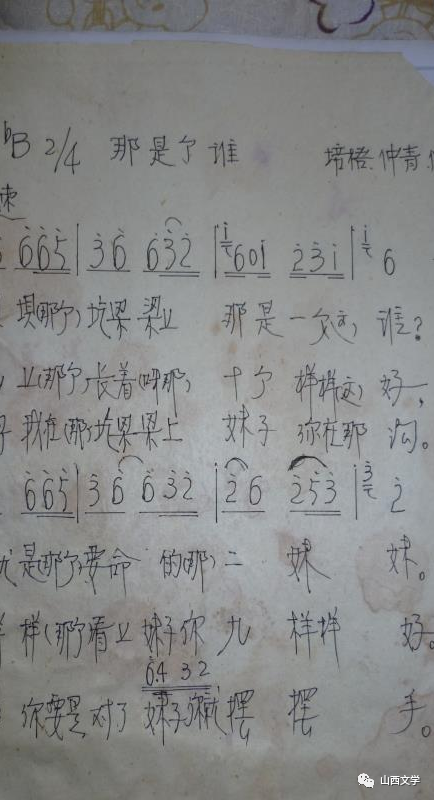 ♭B 2/4 那是个谁 培格、仲青
速
6 665 | 3 6 632 | 601 231 | 6
垻(那个)圪梁梁上 那是一个(这)谁?
上(那个)长着(呀那) 十个样样(这)好,
我在(那)圪梁梁上 妹子你在那沟。
665 | 36 632 | 26 253 | 2
是(那个)要命的(那)二妹妹。
样(那个)看上妹子你九样样好。
64 32
你要是对了妹子你就摆摆手。
山西文学